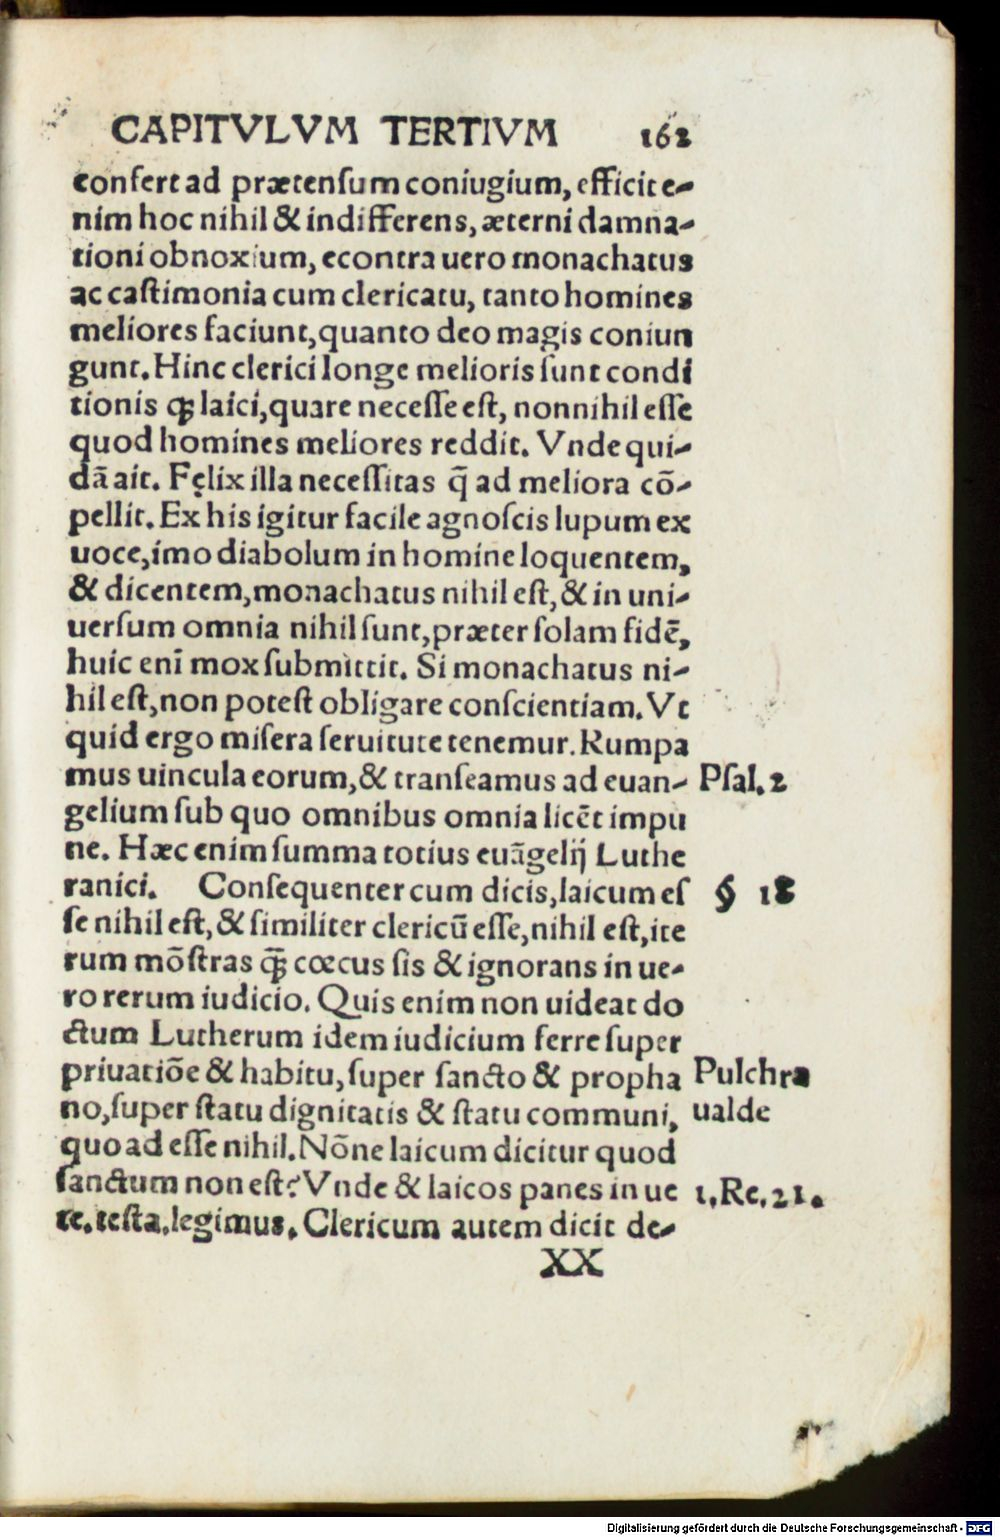 CAPITVLVM TERTIVM 162
confert ad prætenſum coniugium, efficit e-
nim hoc nihil & indifferens, æterni damna-
tioni obnoxium, econtra uero monachatus
ac caſtimonia cum clericatu, tanto homines
meliores faciunt, quanto deo magis coniun
gunt. Hinc clerici longe melioris ſunt condi
tionis ꝗ̃ laici, quare neceſſe eſt, nonnihil eſſe
quod homines meliores reddit. Vnde qui-
dā ait. Fęlix illa neceſſitas q̄ ad meliora cō-
pellit. Ex his igitur facile agnoſcis lupum ex
uoce, imo diabolum in homine loquentem,
& dicentem, monachatus nihil eſt, & in uni-
uerſum omnia nihil ſunt, præter ſolam fidē,
huic eni̅ mox ſubmittit. Si monachatus ni-
hil eſt, non poteſt obligare conſcientiam. Vt
quid ergo miſera ſeruitute tenemur. Rumpa
mus uincula eorum, & tranſeamus ad euan- Pſal. 2
gelium ſub quo omnibus omnia licēt impu
ne. Hæc enim ſumma totius euāgelij Luthe
ranici. Conſequenter cum dicis, laicum eſ § 18
ſe nihil eſt, & ſimiliter clericū eſſe, nihil eſt, ite
rum mōſtras ꝗ̃ cœcus ſis & ignorans in ue-
ro rerum iudicio. Quis enim non uideat do
ctum Lutherum idem iudicium ferre ſuper
priuatiōe & habitu, ſuper ſancto & propha Pulchra
no, ſuper ſtatu dignitatis & ſtatu communi, ualde
quo ad eſſe nihil. Nōne laicum dicitur quod
ſanctum non eſt? Vnde & laicos panes in ue 1. Re. 21.
te. teſta. legimus. Clericum autem dicit de-
XX
Digitalisierung gefördert durch die Deutsche Forschungsgemeinschaft - DFG